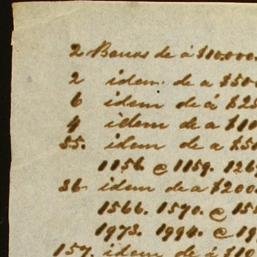 2 Bonos de á $10.000.
2 idem. de a $500
6 idem de á $25
4 idem de a $10
55. idem de a $50
1156 @ 1159. 126
36 idem de a $200.
1566. 1570. @ 15
1973. 1994. @ 19
157. idem de á $10